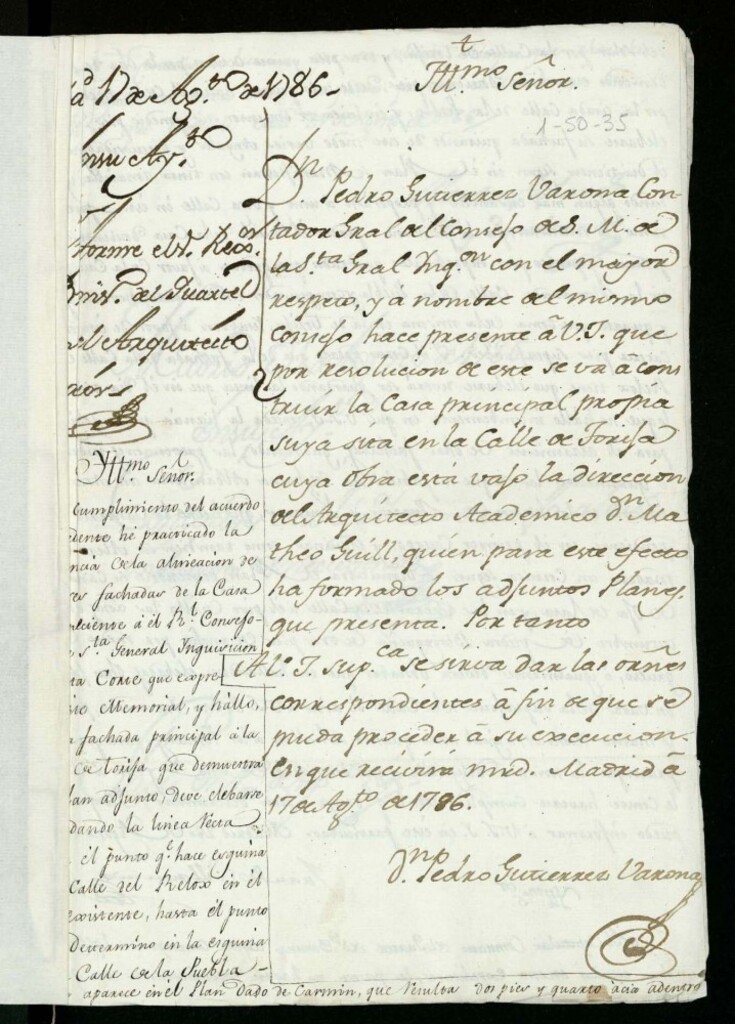 17 de Ag.to de 1786.
Ag.to
Informe el S. Rexor
del Quartel
Arquitecto
Yll.mo Señor.
cumplimiento del acuerdo
he practicado la
de la alineacion de
fachadas de la Casa
á él R.l Consejo
S.ta General Ynquisicion
Corte que
Memorial, y hállo,
fachada principal á la
de Torija que demuestra
adjunto, deve elebarse
dando la linea recta
él punto q.e hace esquina
Calle del Relox en él
existente, hasta él punto
determino en la esquina
Calle de la Puebla
aparece en él Plan dado de Carmin, que resulta dos pies y quarto ácia adentro
Yll.mo Señor.
1-50-35
D.n Pedro Gutierrez Varona Con
tador Gral del Consejo de S. M. de
la S.ta Gral Ynq.on con el mayor
respeto, y á nombre del mismo
Consejo hace presente á V.I. que
por resolucion de este se vá á cons
truir la Casa principal propia
suya sita en la Calle de Torija
cuya Obra está vajo la direccion
del Arquitecto Academico d.n Ma
theo Guill, quien para este efecto
ha formado los adjuntos Planes,
que presenta. Por tanto
A V. I. sup.ca se sirva dar las orñes
correspondientes á fin de que se
pueda proceder á su execucion
en que recivirá mrd. Madrid á
17 de Ag.to de 1786.
D.n Pedro Gutierrez Varona